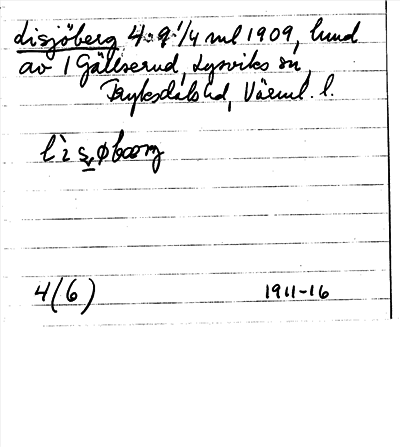 Lisjöberg 4:9 1/4 ml 1909, lund
av 1 Gällserud, Lysviks sn,
Fryksdals hd, Värml. l.
lìsøbærj
4(6) 1911-16